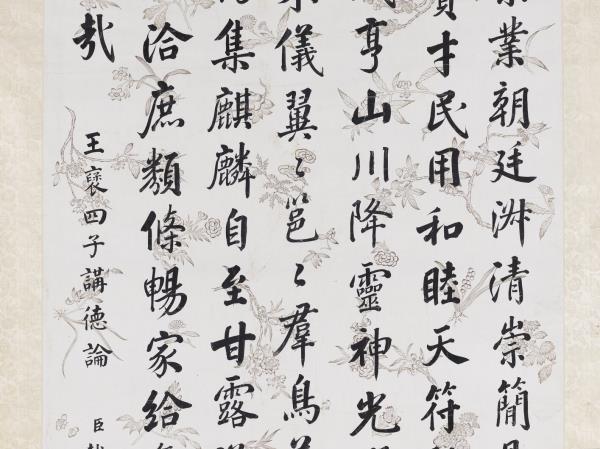 業朝廷淑清崇簡
才民用和睦天符
亨山川降靈神光
儀翼〻邕〻羣鳥
集麒麟自至甘露
洽庶類條暢家給
哉
王襃四子講德論
臣